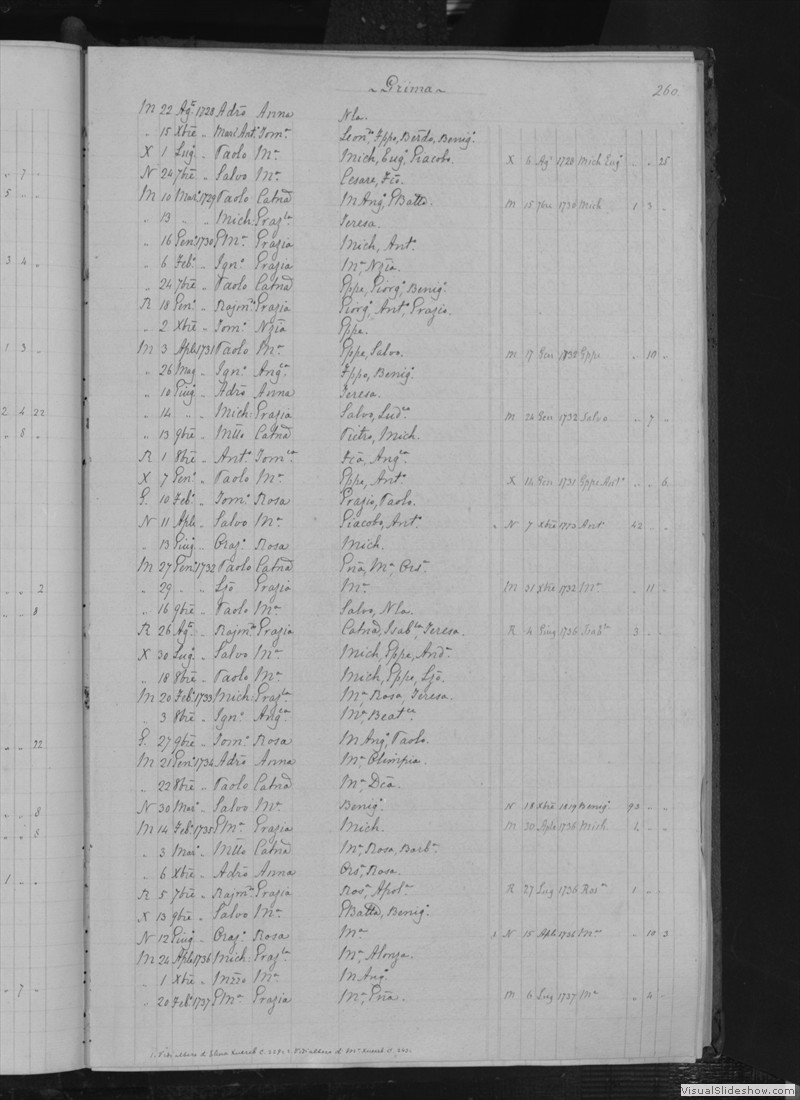 ~ Grima ~ 260
M 22 Agº 1728 Adrō Anna Nla.
„ 15 Xbrē „ Mari Antº Domca Leonra, Fppo, Berdo, Benigº
X 1 Lugº „ Paolo Ma Mich, Eugº, Giacobo. X 6 Agº 1728 Mich Eugº „ „ 25
N 24 7brē „ Salvo Ma Cesare, Fcō.
M 10 Marº 1729 Paolo Catnā M Angº, GBatta. M 15 1730 Mich 1 3 „
„ 13 „ „ Mich: Grazla Teresa.
„ 16 Genº 1730 GMa Grazia Mich, Antº
„ 6 Febº „ Ignº Grazia Ma, Nzia.
„ 24 7brē „ Paolo Catnā Gppe, Giorgº, Benigº
R 18 Genº „ Rajmdo Grazia Giorgº, Antº, Grazia.
„ 2 Xbrē „ Domº Nzia Gppe.
M 3 Aple 1731 Paolo Ma Gppe, Salvo. M 17 Gen 1838 Gppe „ 10 „
„ 26 Mag „ Ignº Angca Fppo, Benigº
„ 10 Giugº „ Adrō Anna Teresa.
„ 14 „ „ Mich: Grazia Salvo, Ludco M 24 Gen 1732 Salvo „ 7 „
„ 13 9brē „ Mtto Catnā Pietro, Mich.
R 1 8brē „ Antº Domca Fcā, Angca
X 7 Genº „ Paolo Ma Gppe, Antº X 14 Gen 1731 Gppe Antº „ „ 6
G. 10 Febº „ Domº Rosa Grazia, Paolo.
N 11 Aple „ Salvo Ma Giacobo, Antº N 7 Xbrē 1772 Antº 42 „ „
„ 13 Giugº „ Orazº Rosa Mich.
M 27 Genº 1732 Paolo Catnā Gnā, Ma, Orsa
„ 29 „ „ Ljō Grazia Ma M 31 Xbrē 1732 Ma „ 11 „
„ 16 9brē „ Paolo Ma Salvo, Nla.
R 26 Agº „ Rajmdo Grazia Catnā, Isabla, Teresa. R 4 Giugº 1736 Isabla 3 „ „
X 30 Lugº „ Salvo Ma Mich, Gppe, Andª
„ 18 8brē „ Paolo Ma Mich, Gppe, Ljō.
M 20 Febº 1733 Mich: Grazla Ma, Rosa, Teresa.
„ 3 8brē „ Ignº Angca Ma, Beatce
G. 27 9brē „ Domº Rosa M Angº, Paolo.
M 21 Genº 1734 Adrō Anna Ma, Olimpia.
„ 22 8brē „ Paolo Catnā Ma, Dcā.
N 30 Marº „ Salvo Ma Benigº N 18 Xbrē Benigº 93 „ „
M 14 Febº 1735 GMa Grazia Mich. M 30 Aple 1736 Mich 1 „ „
„ 3 Marº „ Mtto Catnā Ma, Rosa, Barbª
„ 6 Xbrē „ Adrō Anna Orsª, Rosa.
R 5 7brē „ Rajmdo Grazia Rosª, Apolª R 27 Lug 1736 Rosª 1 „ „
X 13 9brē „ Salvo Ma GBatta, Benigº
N 12 Giugº „ Orazº Rosa Ma N 15 Aple 1736 Ma „ 10 3
M 24 Aple 1736 Mich: Grazla Ma, Alonza.
„ 1 Xbrē „ Mzzo Ma M Angº
„ 20 Febº 1737 GMa Grazia Ma, Gnā. M 6 Lug 1737 Ma „ 4 „
VisualSlideshow.com